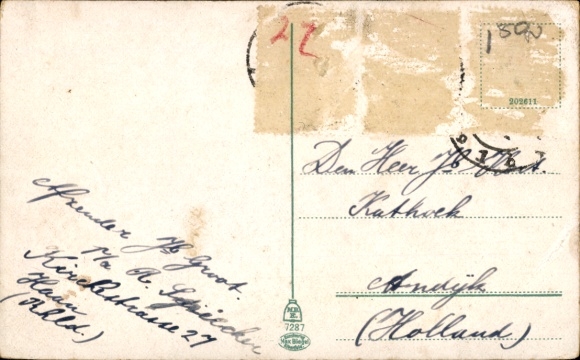 27
1500
202611
Den Heer Jb
Kathoek
Andijk
(Holland)
Afzender Jb Groot.
p/a R.
Kirchstrasse 27
Haan
(Rhld.)
7287